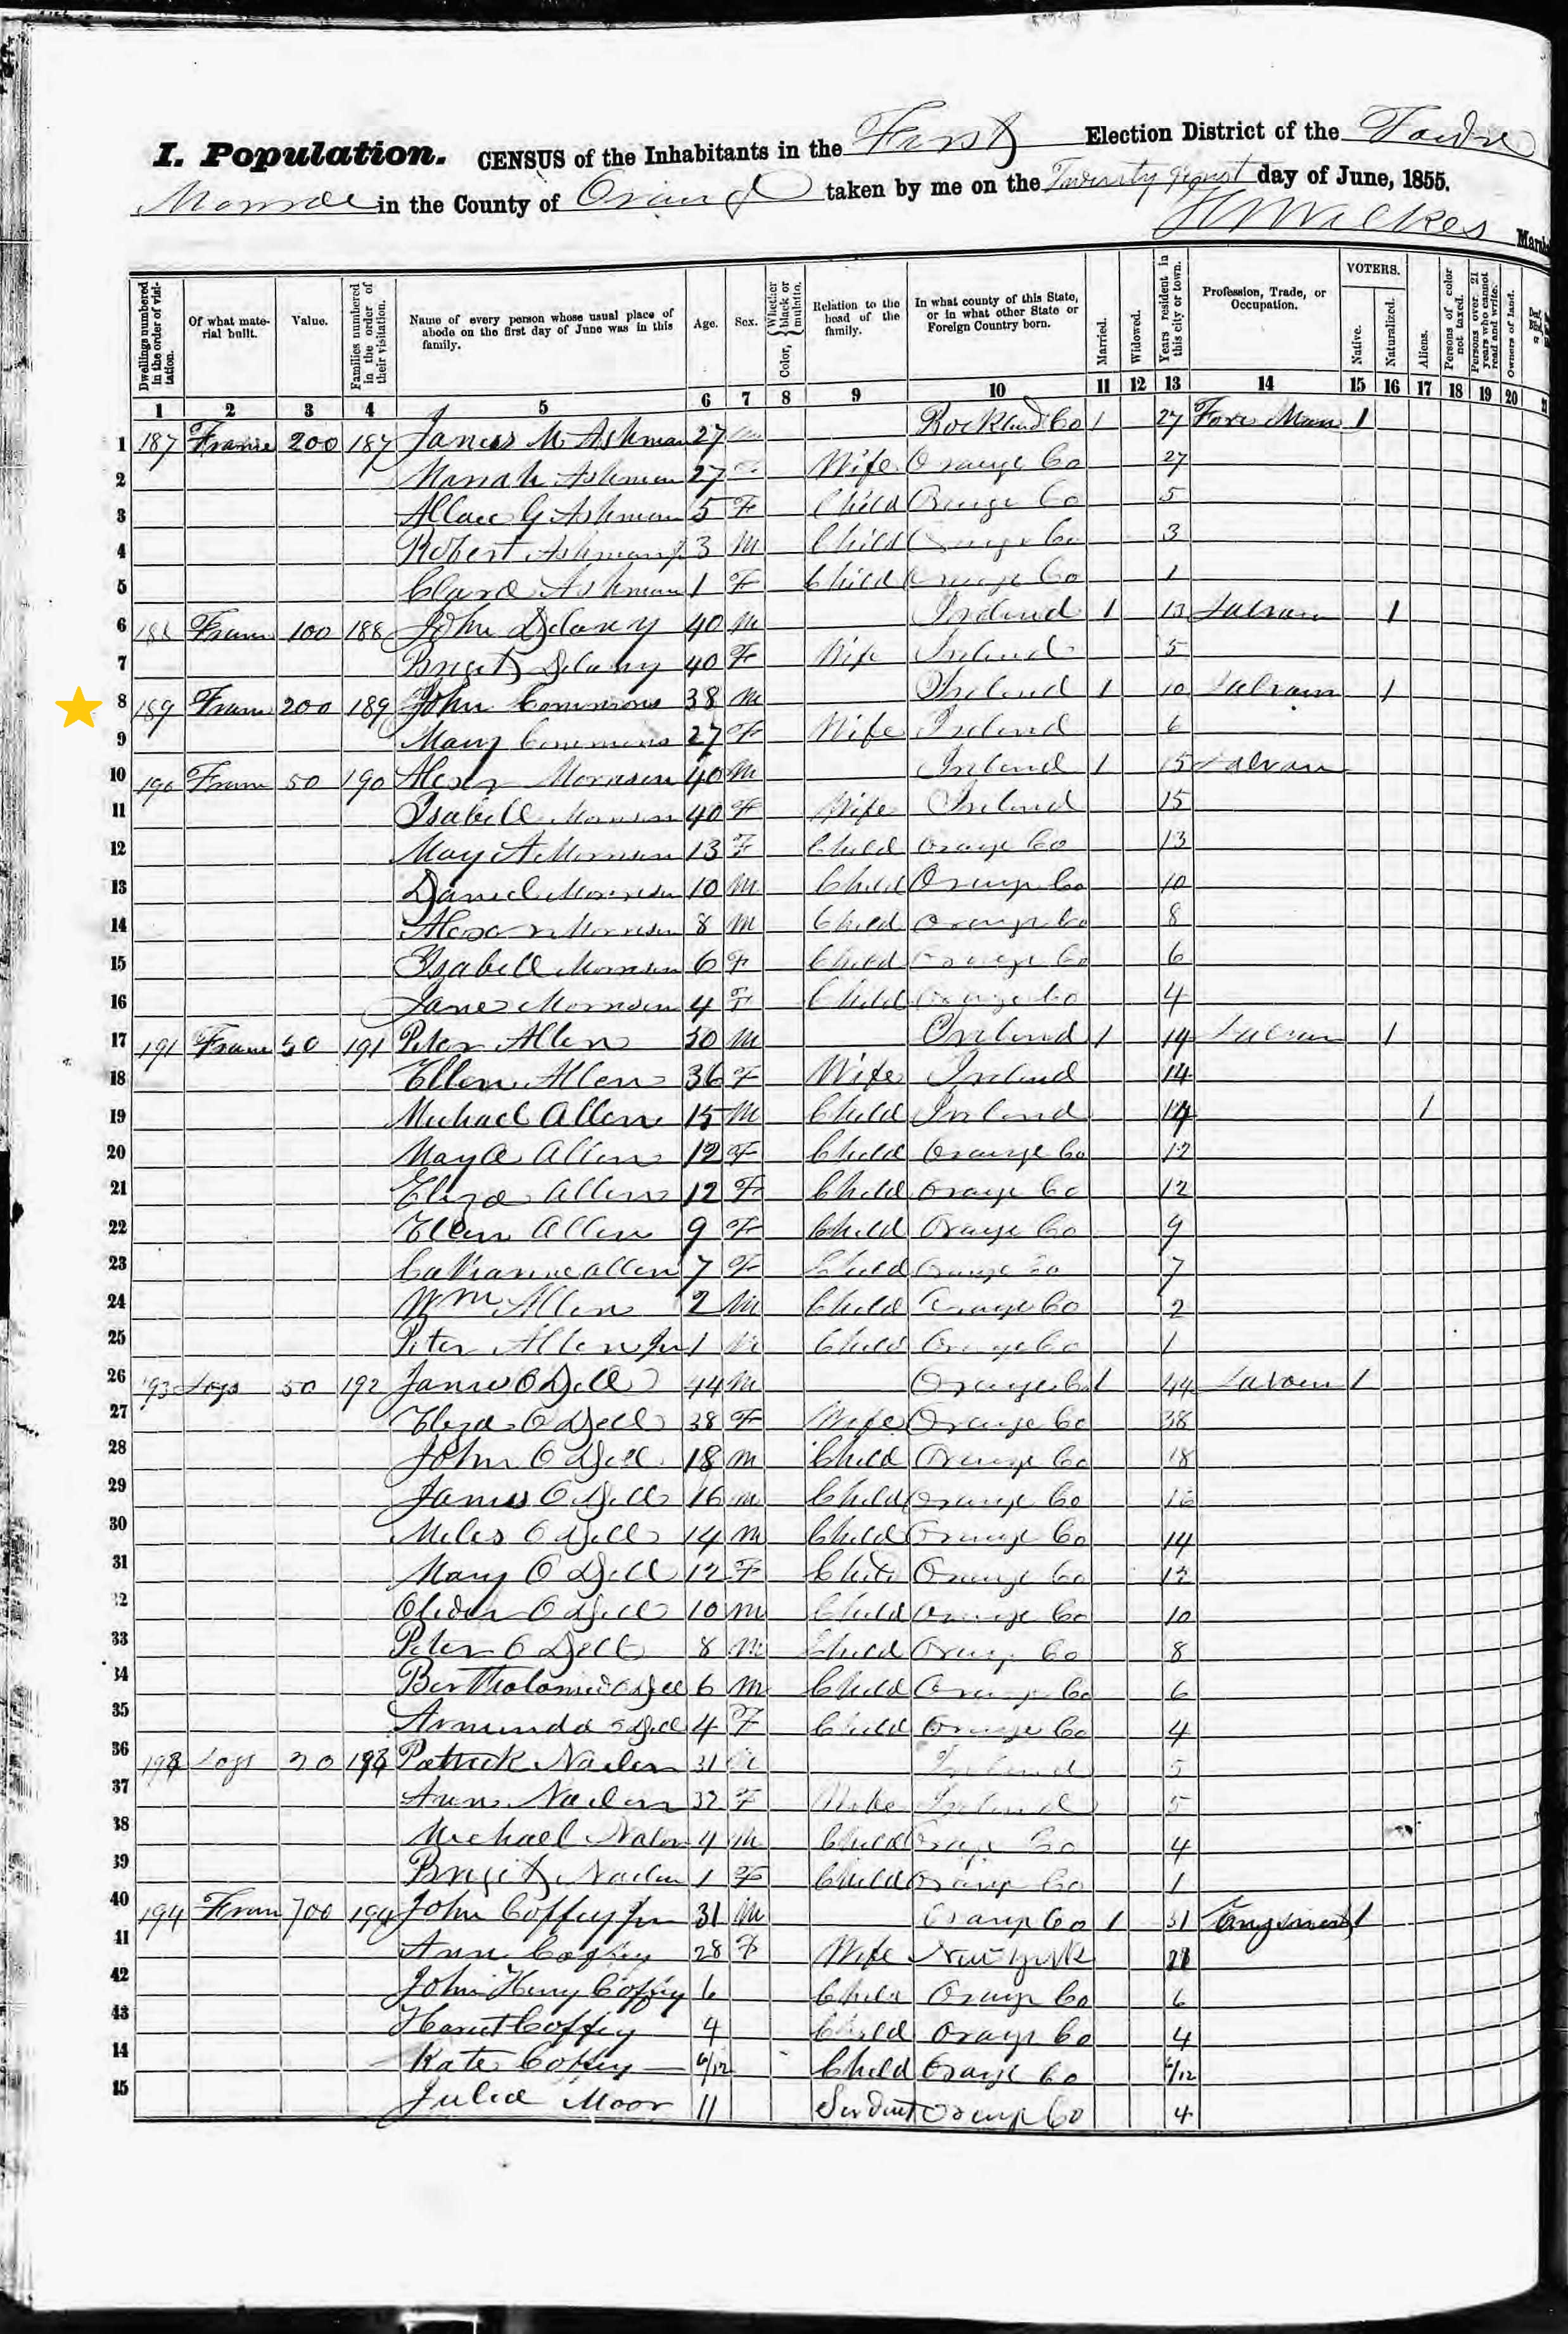 I. Population. CENSUS of the Inhabitants in the First Election District of the Town
Monroe in the County of Orange taken by me on the Twenty first day of June, 1855.
Wilkes Marsh
Dwellings numbered in the order of visitation. Of what material built. Value. Families numbered in the order of their visitation. Name of every person whose usual place of abode on the first day of June was in this family. Age. Sex. Color, Whether black or mulatto. Relation to the head of the family. In what county of this State, or in what other State or Foreign Country born. Married. Widowed. Years resident in this city or town. Profession, Trade, or Occupation. VOTERS. Native. Naturalized. Aliens. Persons of color not taxed. Persons over 21 years who cannot read and write. Owners of land.
1 2 3 4 5 6 7 8 9 10 11 12 13 14 15 16 17 18 19 20
1 187 Frame 200 187 James M Ashman 27 m Rockland Co 1 27 Fore Man 1
2 Ashman 27 F Wife Orange Co 27
3 G Ashman 5 F Child Orange Co 5
4 Robert Ashman 3 M Child Orange Co 3
5 Ashman 1 F Child Orange Co 1
6 188 Fram 100 188 John Delaney 40 M Ireland 1 13 1
7 Briget Delany 40 F Wife Ireland 5
8 189 Fram 200 189 John Commons 38 M Ireland 1 10 1
9 Mary Commons 27 F Wife Ireland 6
10 190 Fram 50 190 Morrison 40 M Ireland 1 15
11 Isabell Morrison 40 F Wife Ireland 15
12 May A Morrison 13 F Child Orange Co 13
13 Daniel Morrison 10 M Child Orange Co 10
14 Morrison 8 M Child Orange Co 8
15 Isabell Morrison 6 F Child Orange Co 6
16 Jane Morrison 4 F Child Orange Co 4
17 191 Fram 50 191 Peter Allen 50 M Ireland 1 14 1
18 Ellen Allen 36 F Wife Ireland 14
19 Michael Allen 15 M Child Ireland 14 1
20 Allen 12 F Child Orange Co 12
21 Eliza Allen 12 F Child Orange Co 12
22 Ellen Allen 9 F Child Orange Co 9
23 Catharine Allen 7 F Child Orange Co 7
24 Wm Allen 2 M Child Orange Co 2
25 Peter Allen Jr 1 M Child Orange Co 1
26 193 Logs 50 192 James O Dell 44 M Orange Co 1 44 1
27 Eliza O Dell 38 F Wife Orange Co 38
28 John O Dell 18 M Child Orange Co 18
29 James O Dell 16 M Child Orange Co 16
30 Miles O Dell 14 M Child Orange Co 14
31 Mary O Dell 12 F Child Orange Co 12
32 Oliver O Dell 10 M Child Orange Co 10
33 Peter O Dell 8 M Child Orange Co 8
34 Bartholomew O Dell 6 M Child Orange Co 6
35 Arminda O Dell 4 F Child Orange Co 4
36 193 Logs 193 Patrick 31 M Ireland 5
37 Ann 32 F Wife Ireland 5
38 Michael 4 M Child Orange Co 4
39 Briget 1 F Child Orange Co 1
40 194 Fram 700 194 John Coffey Jr 31 M Orange Co 1 31 1
41 Ann Coffey 28 F Wife New York
42 John Henry Coffey 6 Child Orange Co 6
43 Coffey 4 Child Orange Co 4
44 Kate Coffey 6/12 Child Orange Co 6/12
45 Julia Moor 11 Orange Co 4